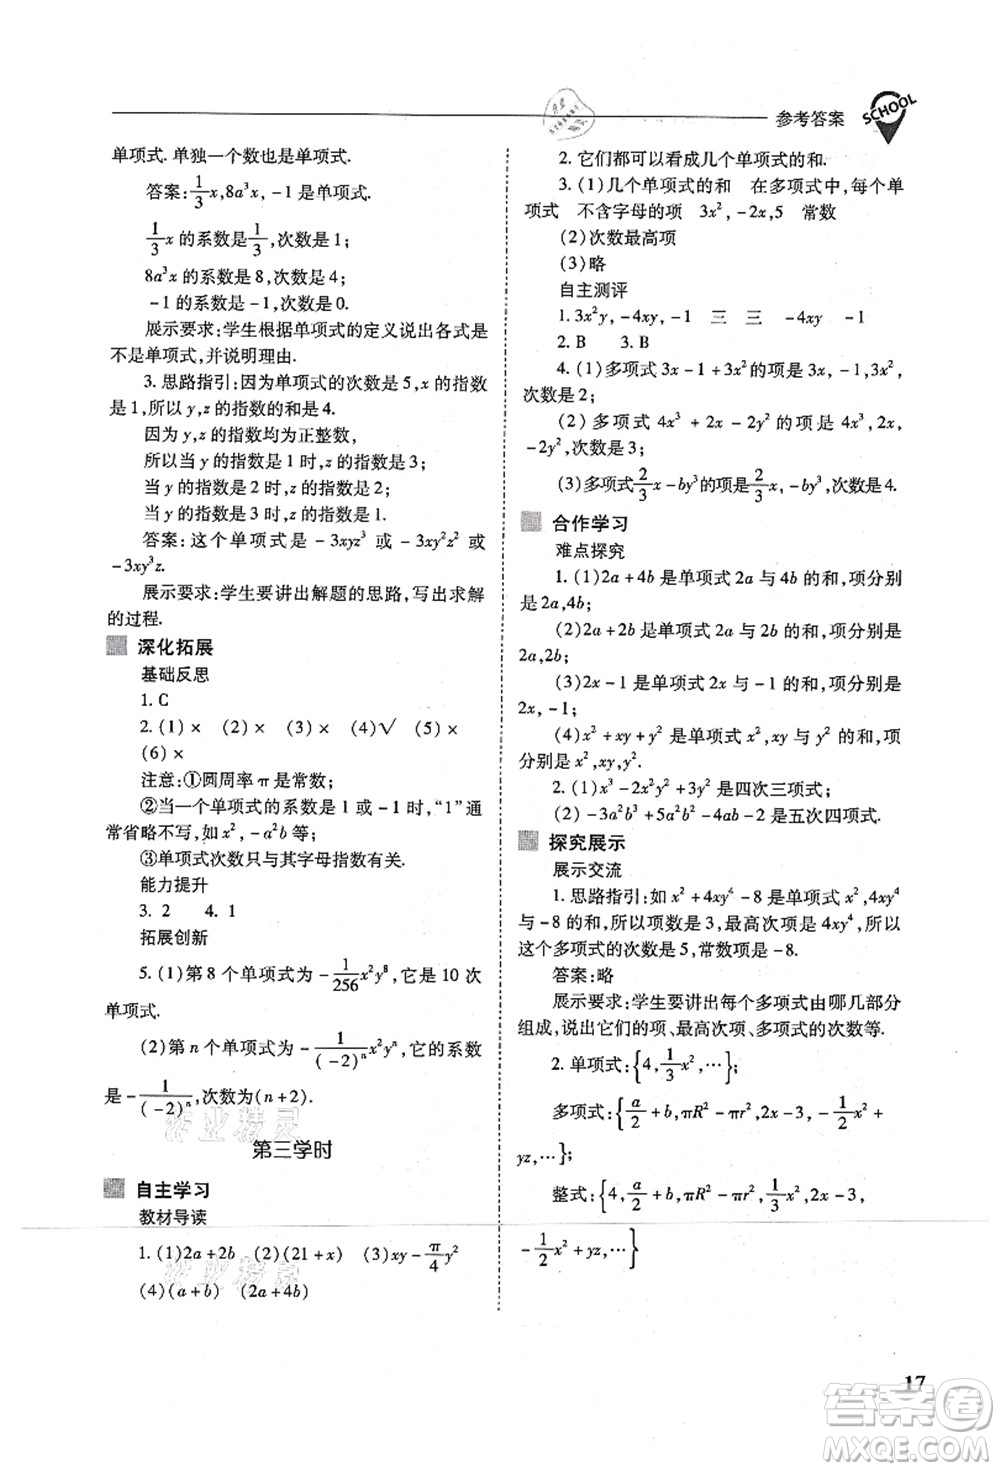 参考答案
SCHOOL
单项式. 单独一个数也是单项式.
答案:1/3x,8a³x, -1 是单项式.
1/3x 的系数是1/3,次数是 1;
8a³x 的系数是 8,次数是 4;
-1 的系数是-1,次数是 0.
展示要求:学生根据单项式的定义说出各式是
不是单项式,并说明理由.
3. 思路指引:因为单项式的次数是 5,x 的指数
是 1,所以 y,z 的指数的和是 4.
因为 y,z 的指数均为正整数,
所以当 y 的指数是 1 时,z 的指数是 3;
当 y 的指数是 2 时,z 的指数是 2;
当 y 的指数是 3 时,z 的指数是 1.
答案:这个单项式是 -3xyz³ 或 -3xy²z² 或
-3xy³z.
展示要求:学生要讲出解题的思路,写出求解
的过程.
深化拓展
基础反思
1. C
2. (1) × (2) × (3) × (4)√ (5) ×
(6) ×
注意:①圆周率 π 是常数;
②当一个单项式的系数是 1 或 -1 时,“1”通
常省略不写,如 x², -a²b 等;
③单项式次数只与其字母指数有关.
能力提升
3. 2 4. 1
拓展创新
5. (1)第 8 个单项式为 -1/256x²y⁸,它是 10 次
单项式.
(2)第 n 个单项式为 -1/(-2)ⁿx²yⁿ,它的系数
是 -1/(-2)ⁿ,次数为(n+2).
第三学时
自主学习
教材导读
1. (1)2a+2b (2)(21+x) (3)xy-π/4y²
(4)(a+b) (2a+4b)
2. 它们都可以看成几个单项式的和.
3. (1)几个单项式的和 在多项式中,每个单
项式 不含字母的项 3x², -2x,5 常数
(2)次数最高项
(3)略
自主测评
1. 3x²y, -4xy, -1 三 三 -4xy -1
2. B 3. B
4. (1)多项式 3x-1+3x²的项是 3x, -1,3x²,
次数是 2;
(2) 多项式 4x³ + 2x - 2y² 的项是 4x³,2x,
-2y²,次数是 3;
(3)多项式2/3x-by³的项是2/3x, -by³,次数是 4.
合作学习
难点探究
1. (1)2a+4b 是单项式 2a 与 4b 的和,项分别
是 2a,4b;
(2)2a+2b 是单项式 2a 与 2b 的和,项分别是
2a,2b;
(3)2x-1 是单项式 2x 与 -1 的和,项分别是
2x, -1;
(4)x²+xy+y² 是单项式 x²,xy 与 y² 的和,项
分别是 x²,xy,y².
2. (1)x³-2x²y²+3y² 是四次三项式;
(2) -3a²b³+5a²b²-4ab-2 是五次四项式.
探究展示
展示交流
1. 思路指引:如 x²+4xy⁴-8 是单项式 x²,4xy⁴
与 -8 的和,所以项数是 3,最高次项是 4xy⁴,所以
这个多项式的次数是 5,常数项是 -8.
答案:略
展示要求:学生要讲出每个多项式由哪几部分
组成,说出它们的项、最高次项、多项式的次数等.
2. 单项式:{4,1/3x²,⋯};
多项式:{a/2+b,πR²-πr²,2x-3, -1/2x²+
yz,⋯};
整式:{4,a/2+b,πR²-πr²,1/3x²,2x-3,
-1/2x²+yz,⋯}
17
作业精灵
作业精灵
答案圈
MXQE.COM